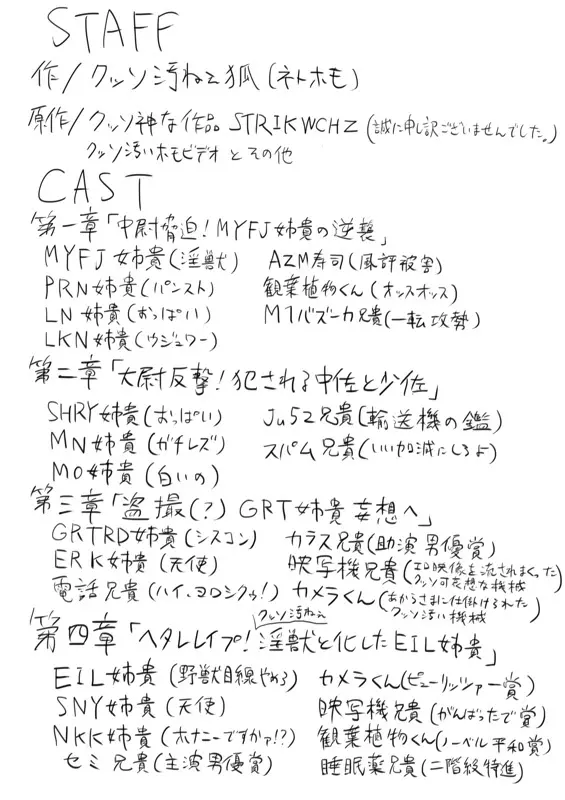 STAFF
作/クッソ汚ねえ狐(ネトホモ)
原作/クッソ神な作品 STRIKWCHZ(誠に申し訳ございませんでした。)
クッソ汚いホモビデオとその他
CAST
第一章「中尉脅迫!MYFJ姉貴の逆襲」
MYFJ姉貴(淫獣) AZM寿司(風評被害)
PRN姉貴(パンスト) 観葉植物くん(オッスオッス)
LN姉貴(おっぱい) M1バズーカ兄貴(一転攻勢)
LKN姉貴(ウジュワー)
第二章「大尉反撃!犯される中佐と少佐」
SHRY姉貴(おっぱい) Ju52兄貴(輸送機の鑑)
MN姉貴(ガチレズ) スパム兄貴(いい加減にしろよ)
MO姉貴(白いの)
第三章「盗撮(?)GRT姉貴妄想へ」
GRTRD姉貴(シスコン) カラス兄貴(助演男優賞)
ERK姉貴(天使) 映写機兄貴(エロ映像を流されまくった
クッソ可哀想な機械
電話兄貴(ハイ、ヨロシクゥ!) カメラくん(あからさまに仕掛けられた
クッソ汚い機械
クッソ汚ねえ
第四章「ヘタレレイプ!淫獣と化したEIL姉貴」
EIL姉貴(野獣目線やめろ) カメラくん(ピューリッツァー賞)
SNY姉貴(天使) 映写機兄貴(がんばったで賞)
NKK姉貴(オナニーですかァ!?) 観葉植物くん(ノーベル平和賞)
セミ兄貴(主演男優賞) 睡眠薬兄貴(二階級特進)